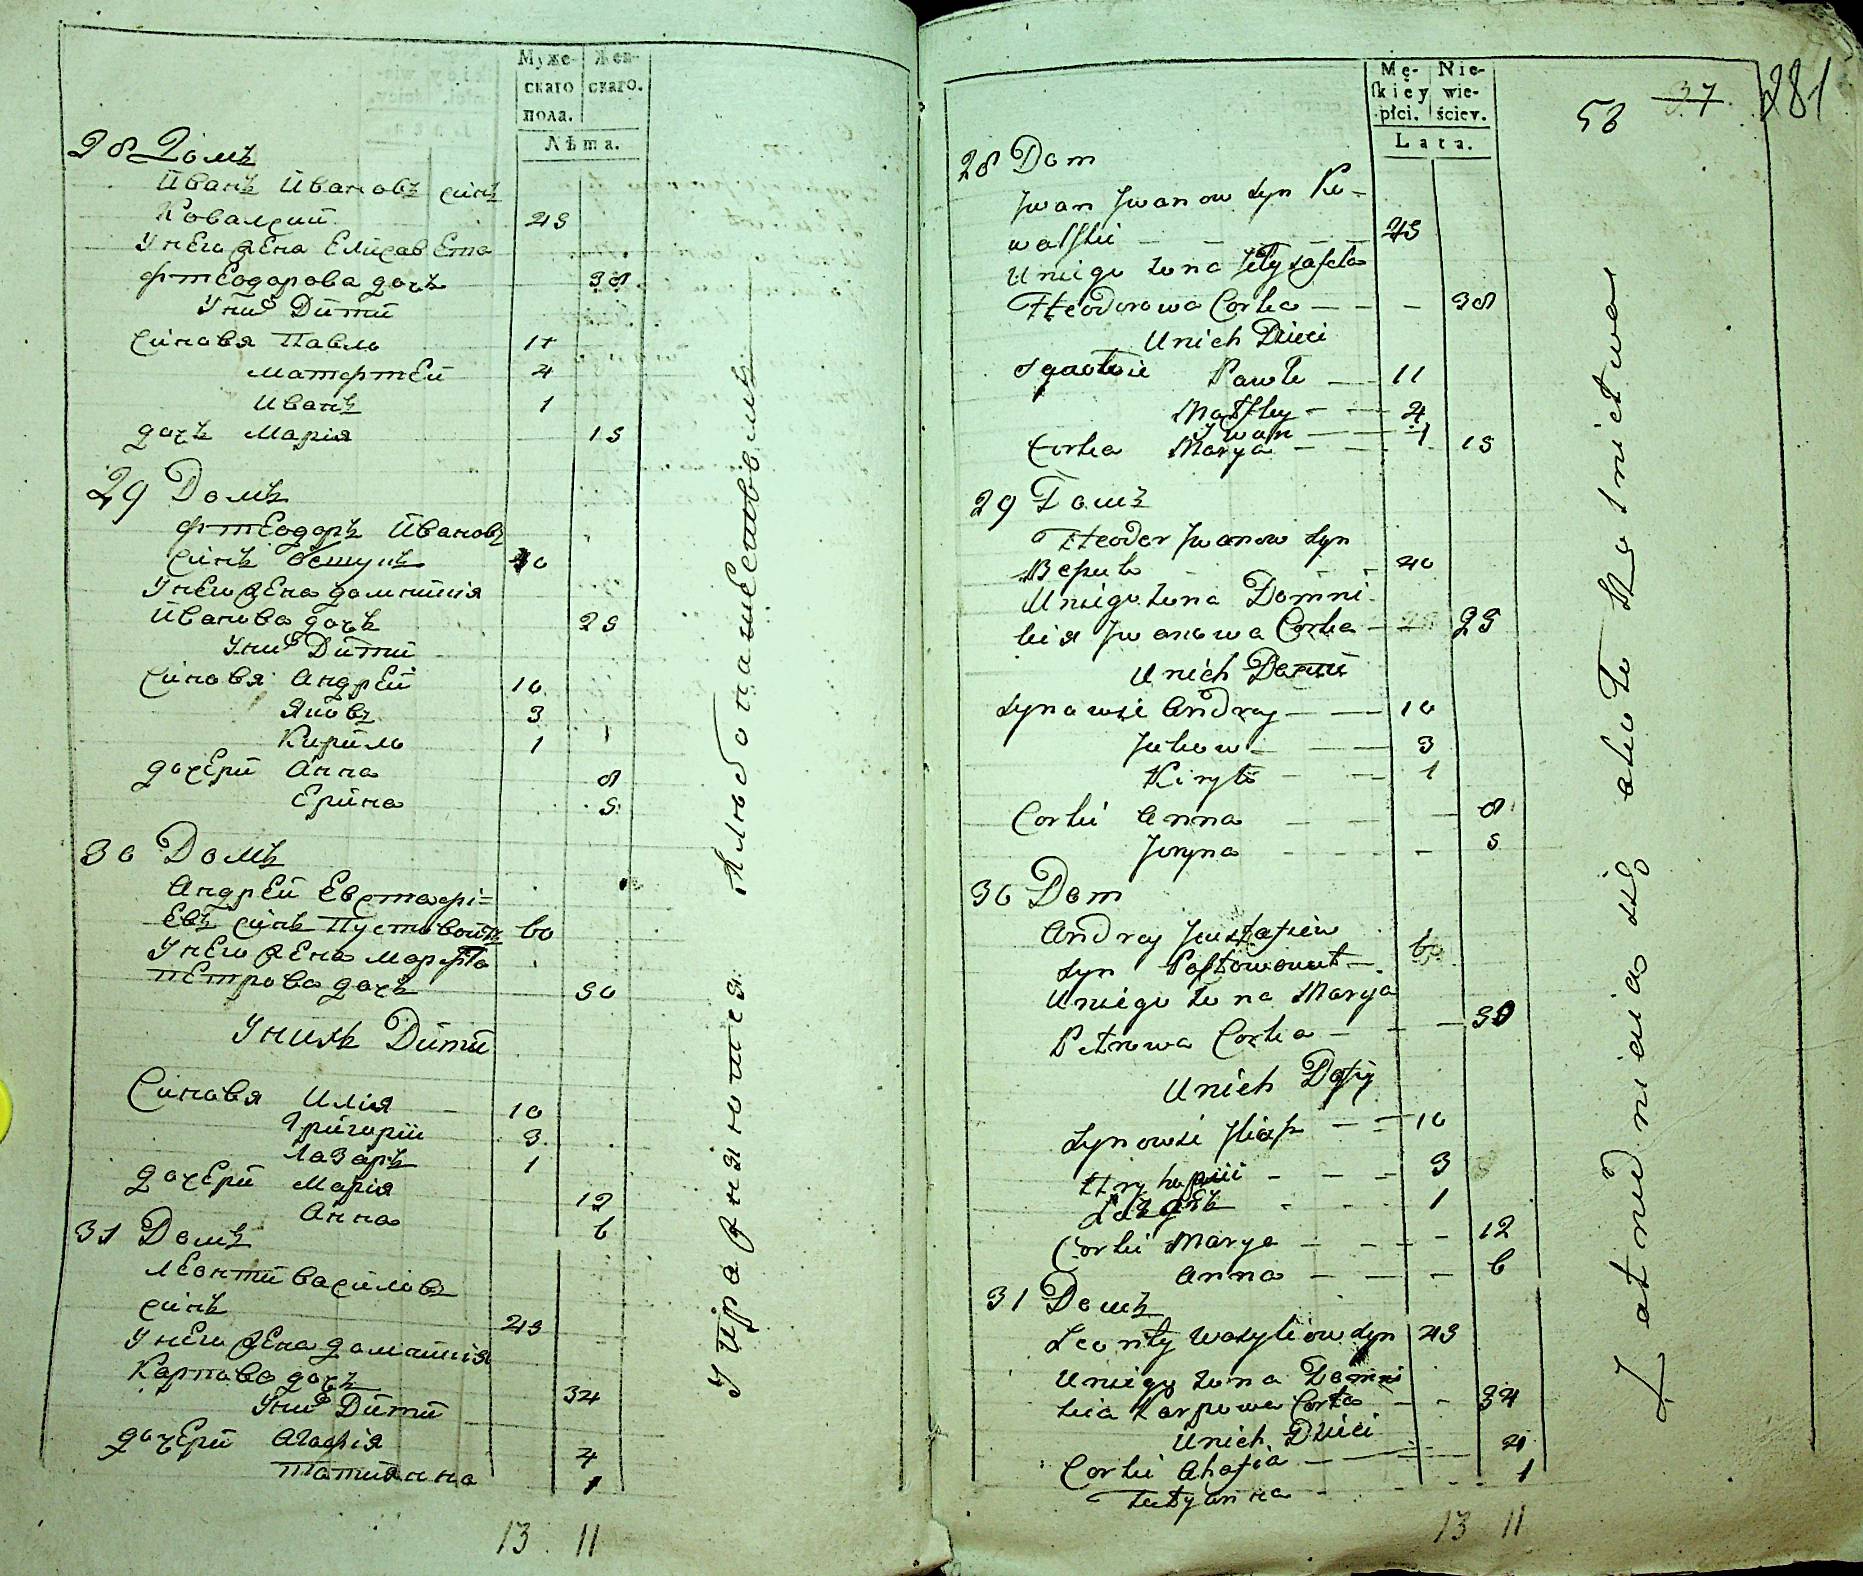 Муже-
скаго
пола.
Жен-
скаго.
Лѣта.
28 Домъ
Иванъ Ивановъ синъ
Ковалский 45
У него жена Елисавета
Фтеодорова дочъ 38
У них Дити
Синовя Павло 11
Матфтей 4
Иванъ 1
дочъ Марія 15
29 Домъ
Фтеодоръ Ивановъ
синъ 40
У него жена Домникія
Иванова дочъ 25
У них Дити
Синовя Андрей 10
Яковъ 3
Кирило 1
дочери Анна 8
Ерина 5
30 Домъ
Андрей Евстафі=
евъ синъ Пустовойтъ 60
У него жена Марфта
Петрова дочъ 50
У нихъ Дити
Синовя Илия 10
Григорій 3
Лазаръ 1
дочери Марія 12
Анна 6
31 Домъ
Леонтій Василіовъ
синъ 45
У него жена Домникія
Карпова дочъ 34
У них Дити
дочери Агафія 4
Татиянна 1
13 11
Упражняются хлебопашествомъ
Mę-
skiey
płci.
Nie-
wie-
ściey.
Lata.
58 37 281
28 Dom
Jwan Jwanow Syn Ko-
walski 45
U niego żona Jelyzafeta
Fteodorowa Corka 38
U nich Dzieci
Synowie Pawło 11
Matfhey 4
Jwan 1
Corka Marya 15
29 Домъ
Fteodor Jwanow Syn
40
U niego żona Domni-
kiя Jwanowa Corka 25
U nich
Synowie Andrey 10
Jakow 3
Kiryło 1
Corki Anna 8
Jeryna 5
30 Dom
Andrey Jewstafiew
Syn Postowowt 60
U niego żona Marya
Petrowa Corka 50
U nich
Synowie Jliaß 10
Hryhoріи 3
1
Corki Marya 12
Anna 6
31 Домъ
Leonty Wasyliow Syn 45
U niego żona Domni
kia Karpowa Corka 34
U nich Dzieci
Corki Ahafia 4
Tatyanna 1
13 11
Zatrudnienia się około Rolnictwa